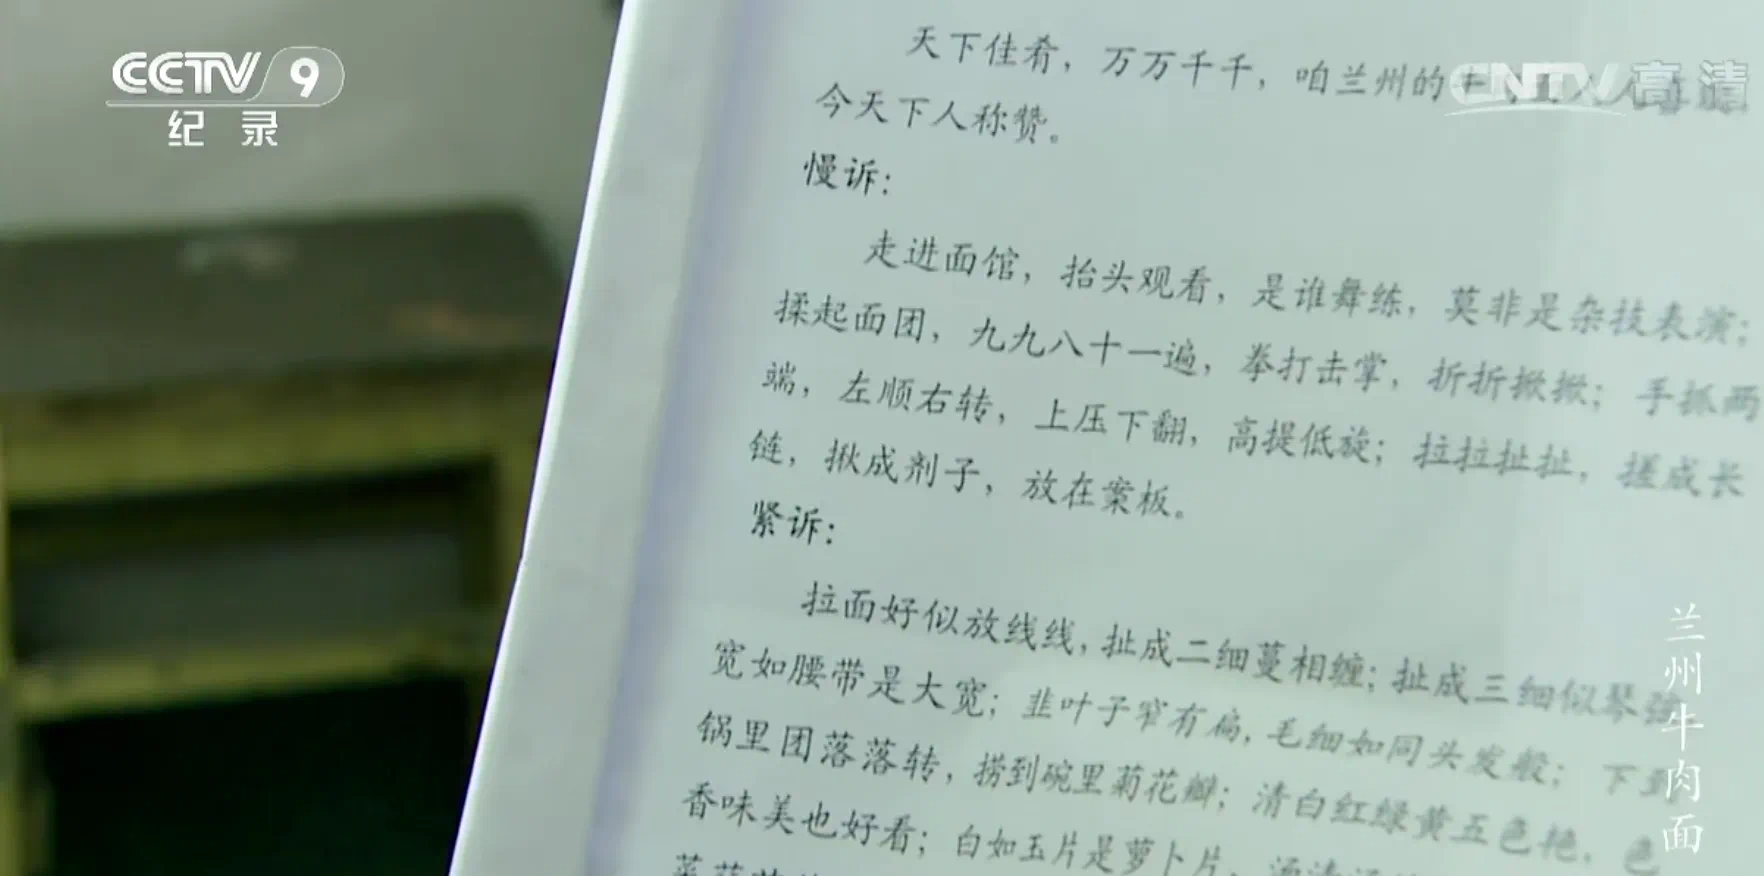 CCTV 9
纪 录
CNTV 高清
天下佳肴，万万千千，咱兰州的牛
今天下人称赞。
慢诉：
走进面馆，抬头观看，是谁舞练，莫非是杂技表演；
揉起面团，九九八十一遍，拳打击掌，折折掀掀；手抓两
端，左顺右转，上压下翻，高提低旋；拉拉扯扯，搓成长
链，揪成剂子，放在案板。
紧诉：
拉面好似放线线，扯成二细蔓相缠；扯成三细似琴弦
宽如腰带是大宽；韭叶子窄有扁，毛细如同头发般；下到
锅里团落落转，捞到碗里菊花瓣；清白红绿黄五色艳，色
香味美也好看；白如玉片是萝卜片，汤清
兰州牛肉面